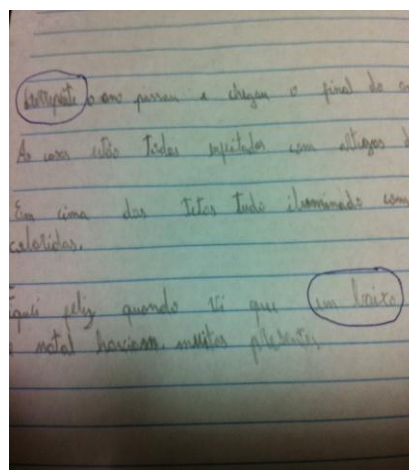 derrepente o ano passou e chegou o final do
As casas estão todas enfeitadas com
Em cima dos tetos tudo iluminado com
coloridas.
Fiquei feliz quando vi que em baixo
natal haviam muitos presentes